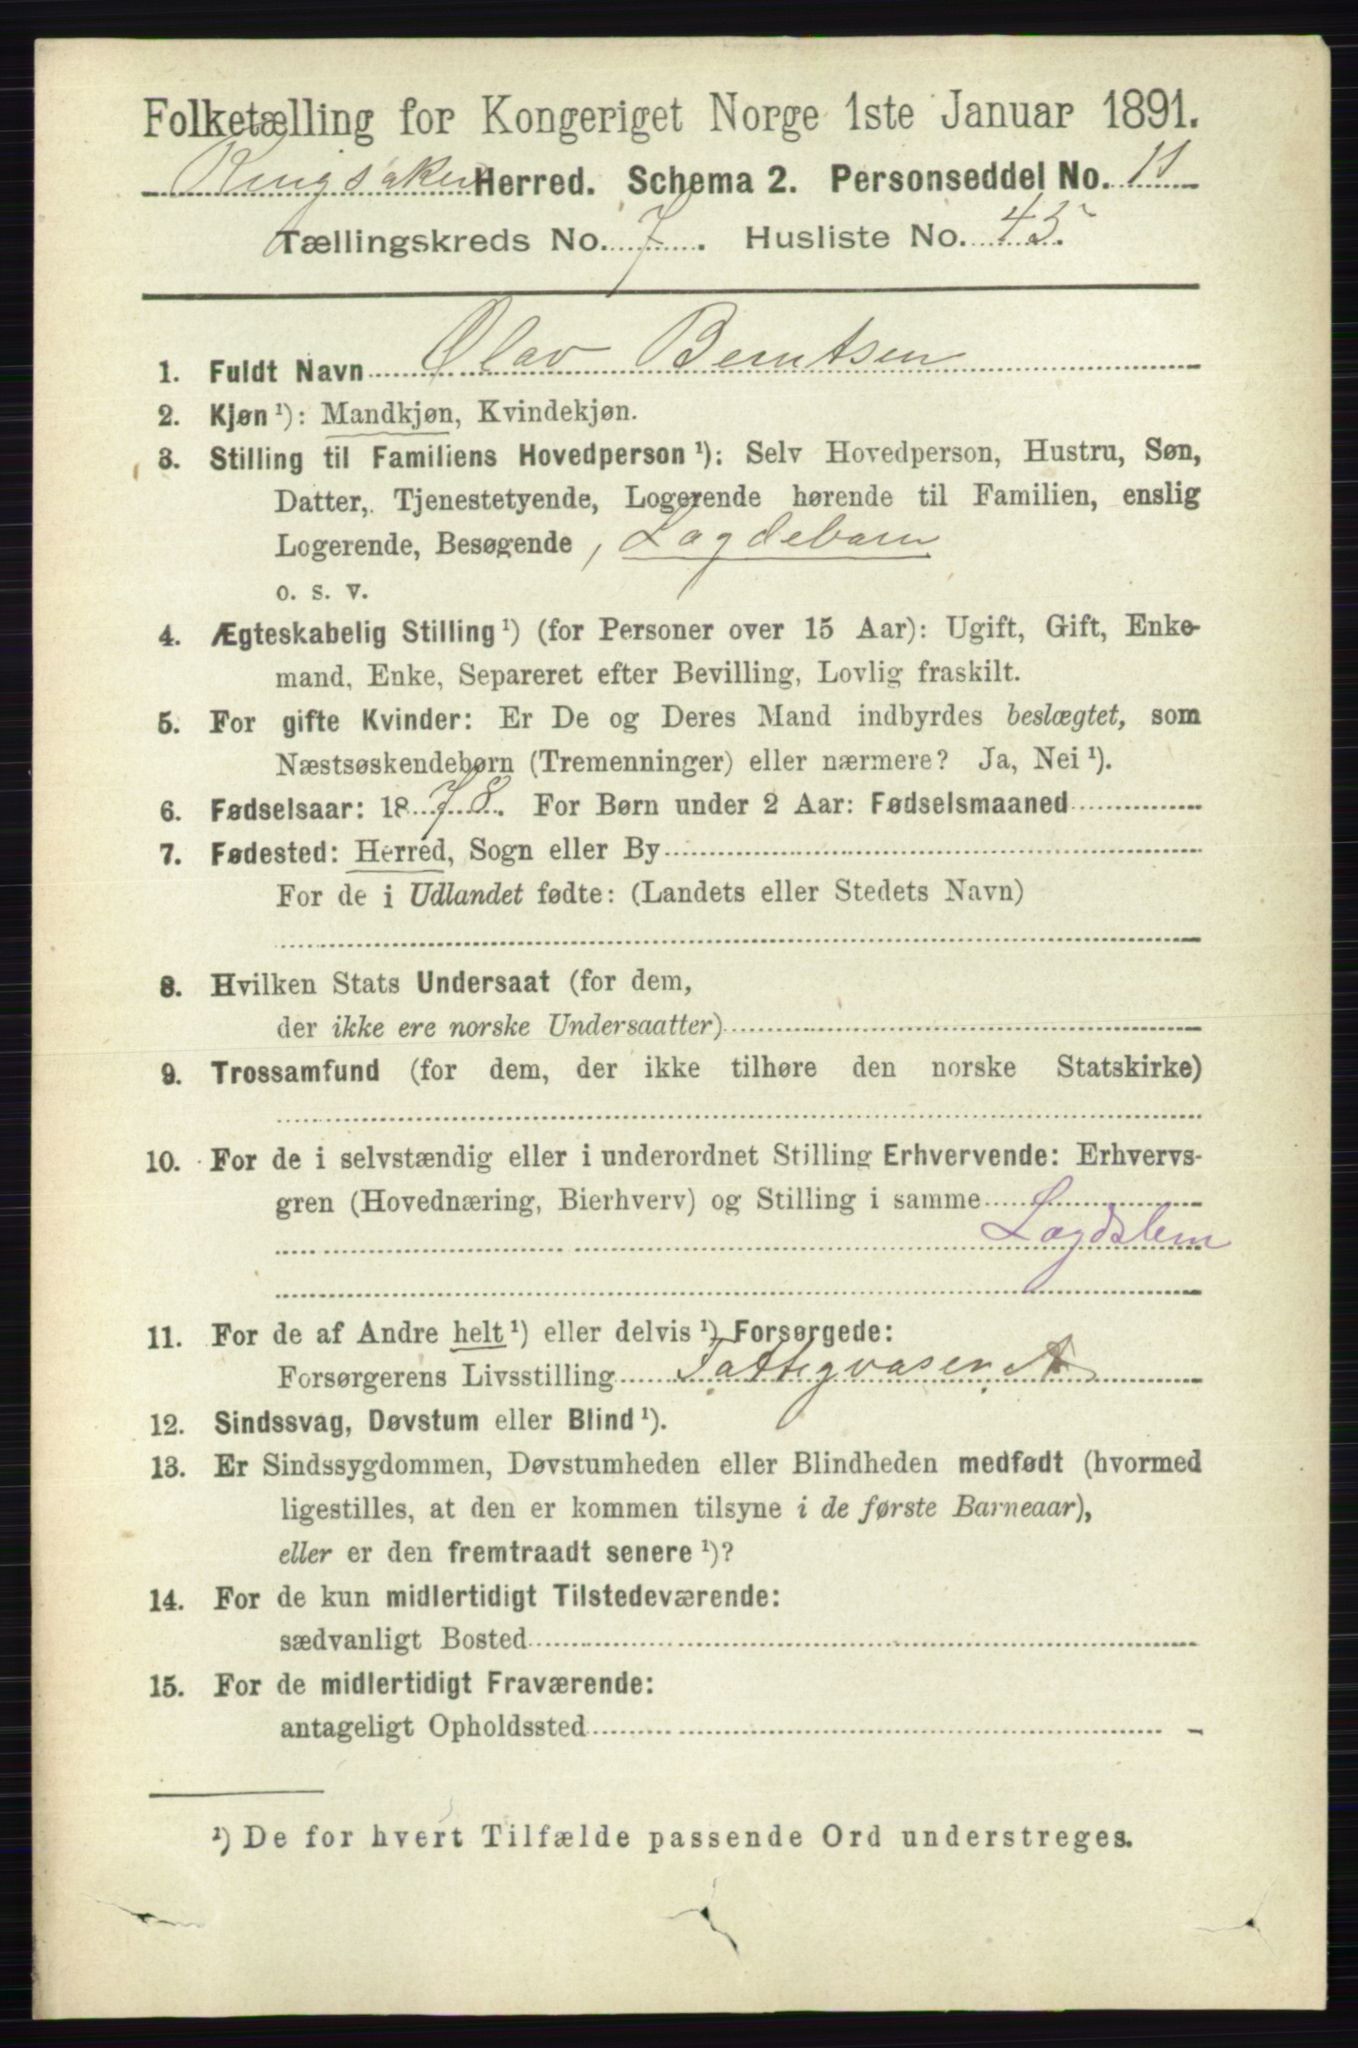 Folketælling for Kongeriget Norge 1ste Januar 1891.
Ringsaker Herred. Schema 2. Personseddel No. 11
Tællingskreds No. 7. Husliste No. 45
1. Fuldt Navn Olav Berntsen
2. Kjøn ¹): Mandkjøn, Kvindekjøn.
3. Stilling til Familiens Hovedperson ¹): Selv Hovedperson, Hustru, Søn,
Datter, Tjenestetyende, Logerende hørende til Familien, enslig
Logerende, Besøgende, Lagdebarn
o. s. v.
4. Ægteskabelig Stilling ¹) (for Personer over 15 Aar): Ugift, Gift, Enke-
mand, Enke, Separeret efter Bevilling, Lovlig fraskilt.
5. For gifte Kvinder: Er De og Deres Mand indbyrdes beslægtet, som
Næstsøskendebørn (Tremenninger) eller nærmere? Ja, Nei ¹).
6. Fødselsaar: 1878. For Børn under 2 Aar: Fødselsmaaned
7. Fødested: Herred, Sogn eller By
For de i Udlandet fødte: (Landets eller Stedets Navn)
8. Hvilken Stats Undersaat (for dem,
der ikke ere norske Undersaatter)
9. Trossamfund (for dem, der ikke tilhøre den norske Statskirke)
10. For de i selvstændig eller i underordnet Stilling Erhvervende: Erhvervs-
gren (Hovednæring, Bierhverv) og Stilling i samme
Lagdslem
11. For de af Andre helt ¹) eller delvis ¹) Forsørgede:
Forsørgerens Livsstilling Fattigvæsenet
12. Sindssvag, Døvstum eller Blind ¹).
13. Er Sindssygdommen, Døvstumheden eller Blindheden medfødt (hvormed
ligestilles, at den er kommen tilsyne i de første Barneaar),
eller er den fremtraadt senere ¹)?
14. For de kun midlertidigt Tilstedeværende:
sædvanligt Bosted
15. For de midlertidigt Fraværende:
antageligt Opholdssted
¹) De for hvert Tilfælde passende Ord understreges.